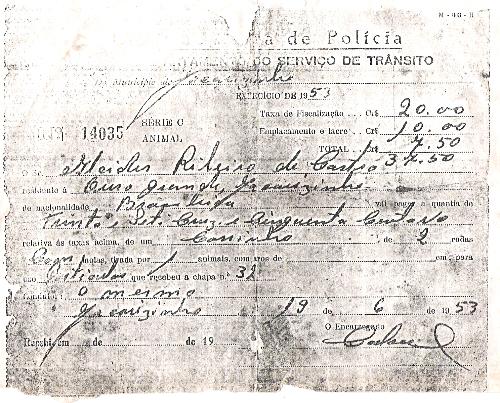 M-90-B
a de Polícia
DO SERVIÇO DE TRÂNSITO
do Município de Jacarezinho
EXERCÍCIO DE 1953
SÉRIE C
ANIMAL
14035
Taxa de Fiscalização . . . Cr$ 20.00
Emplacamento e lacre . . Cr$ 10.00
TOTAL . . Cr$ 7.50
37.50
Ribeiro de Castro
residente à Ouro grande, Jacarezinho
de nacionalidade Brasileira vai pagar a quantia de
Trinta e Sete Cruz e Cinquenta Centavos
relativa às taxas acima, de um Carrinho de 2 rodas
Com molas, tirada por 1 animais, com aros de em para
uso que recebeu a chapa n.º 32
O mesmo
Jacarezinho 19 de 6 de 1953
O Encarregado
Recebi em de de 19